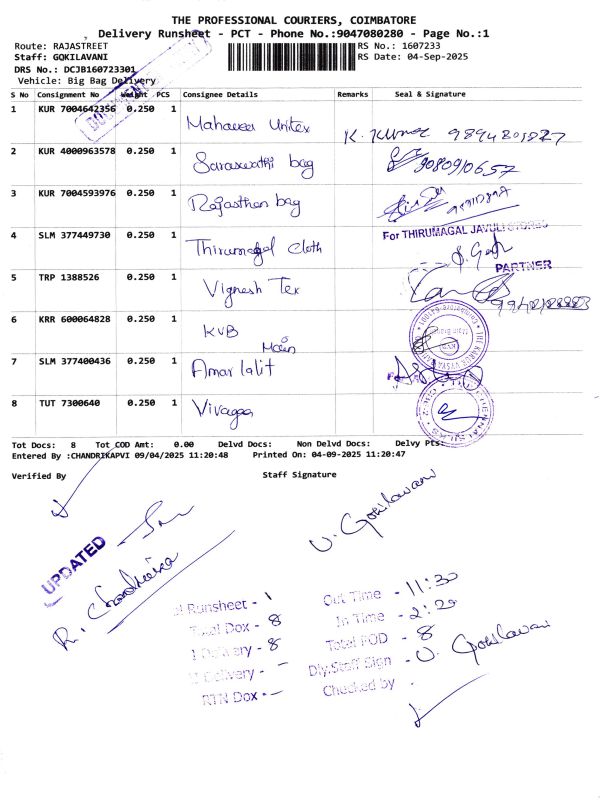 THE PROFESSIONAL COURIERS, COIMBATORE
Delivery Runsheet - PCT - Phone No.:9047080280 - Page No.:1
Route: RAJASTREET
RS No.: 1607233
Staff: GOKILAVANI
RS Date: 04-Sep-2025
DRS No.: DCJB160723301
Vehicle: Big Bag Delivery
S No Consignment No Weight PCS Consignee Details Remarks Seal & Signature
1 KUR 7004642356 0.250 1 Mahaveer Unitex K. Kumar
2 KUR 4000963578 0.250 1 Saraswathi bag 9080910657
3 KUR 7004593976 0.250 1 Rajasthan bag
4 SLM 377449730 0.250 1 Thirumagal Cloth For THIRUMAGAL JAVULI STORES
PARTNER
5 TRP 1388526 0.250 1 Vignesh Tex
6 KRR 600064828 0.250 1 KVB Main
7 SLM 377400436 0.250 1 Amar lalit
8 TUT 7300640 0.250 1 Vivagaa
Tot Docs: 8 Tot COD Amt: 0.00 Delvd Docs: Non Delvd Docs: Delvy Pts:
Entered By :CHANDRIKAPVI 09/04/2025 11:20:48 Printed On: 04-09-2025 11:20:47
Verified By Staff Signature
U. Gokilavani
UPDATED
R. Chandrika
Runsheet - 1
Out Time - 11:30
Total Dox - 8
In Time - 2:20
Delivery - 8
Total POD - 8
Delivery - –
Dly.Staff Sign - U. Gokilavani
RTN Dox - –
Checked by